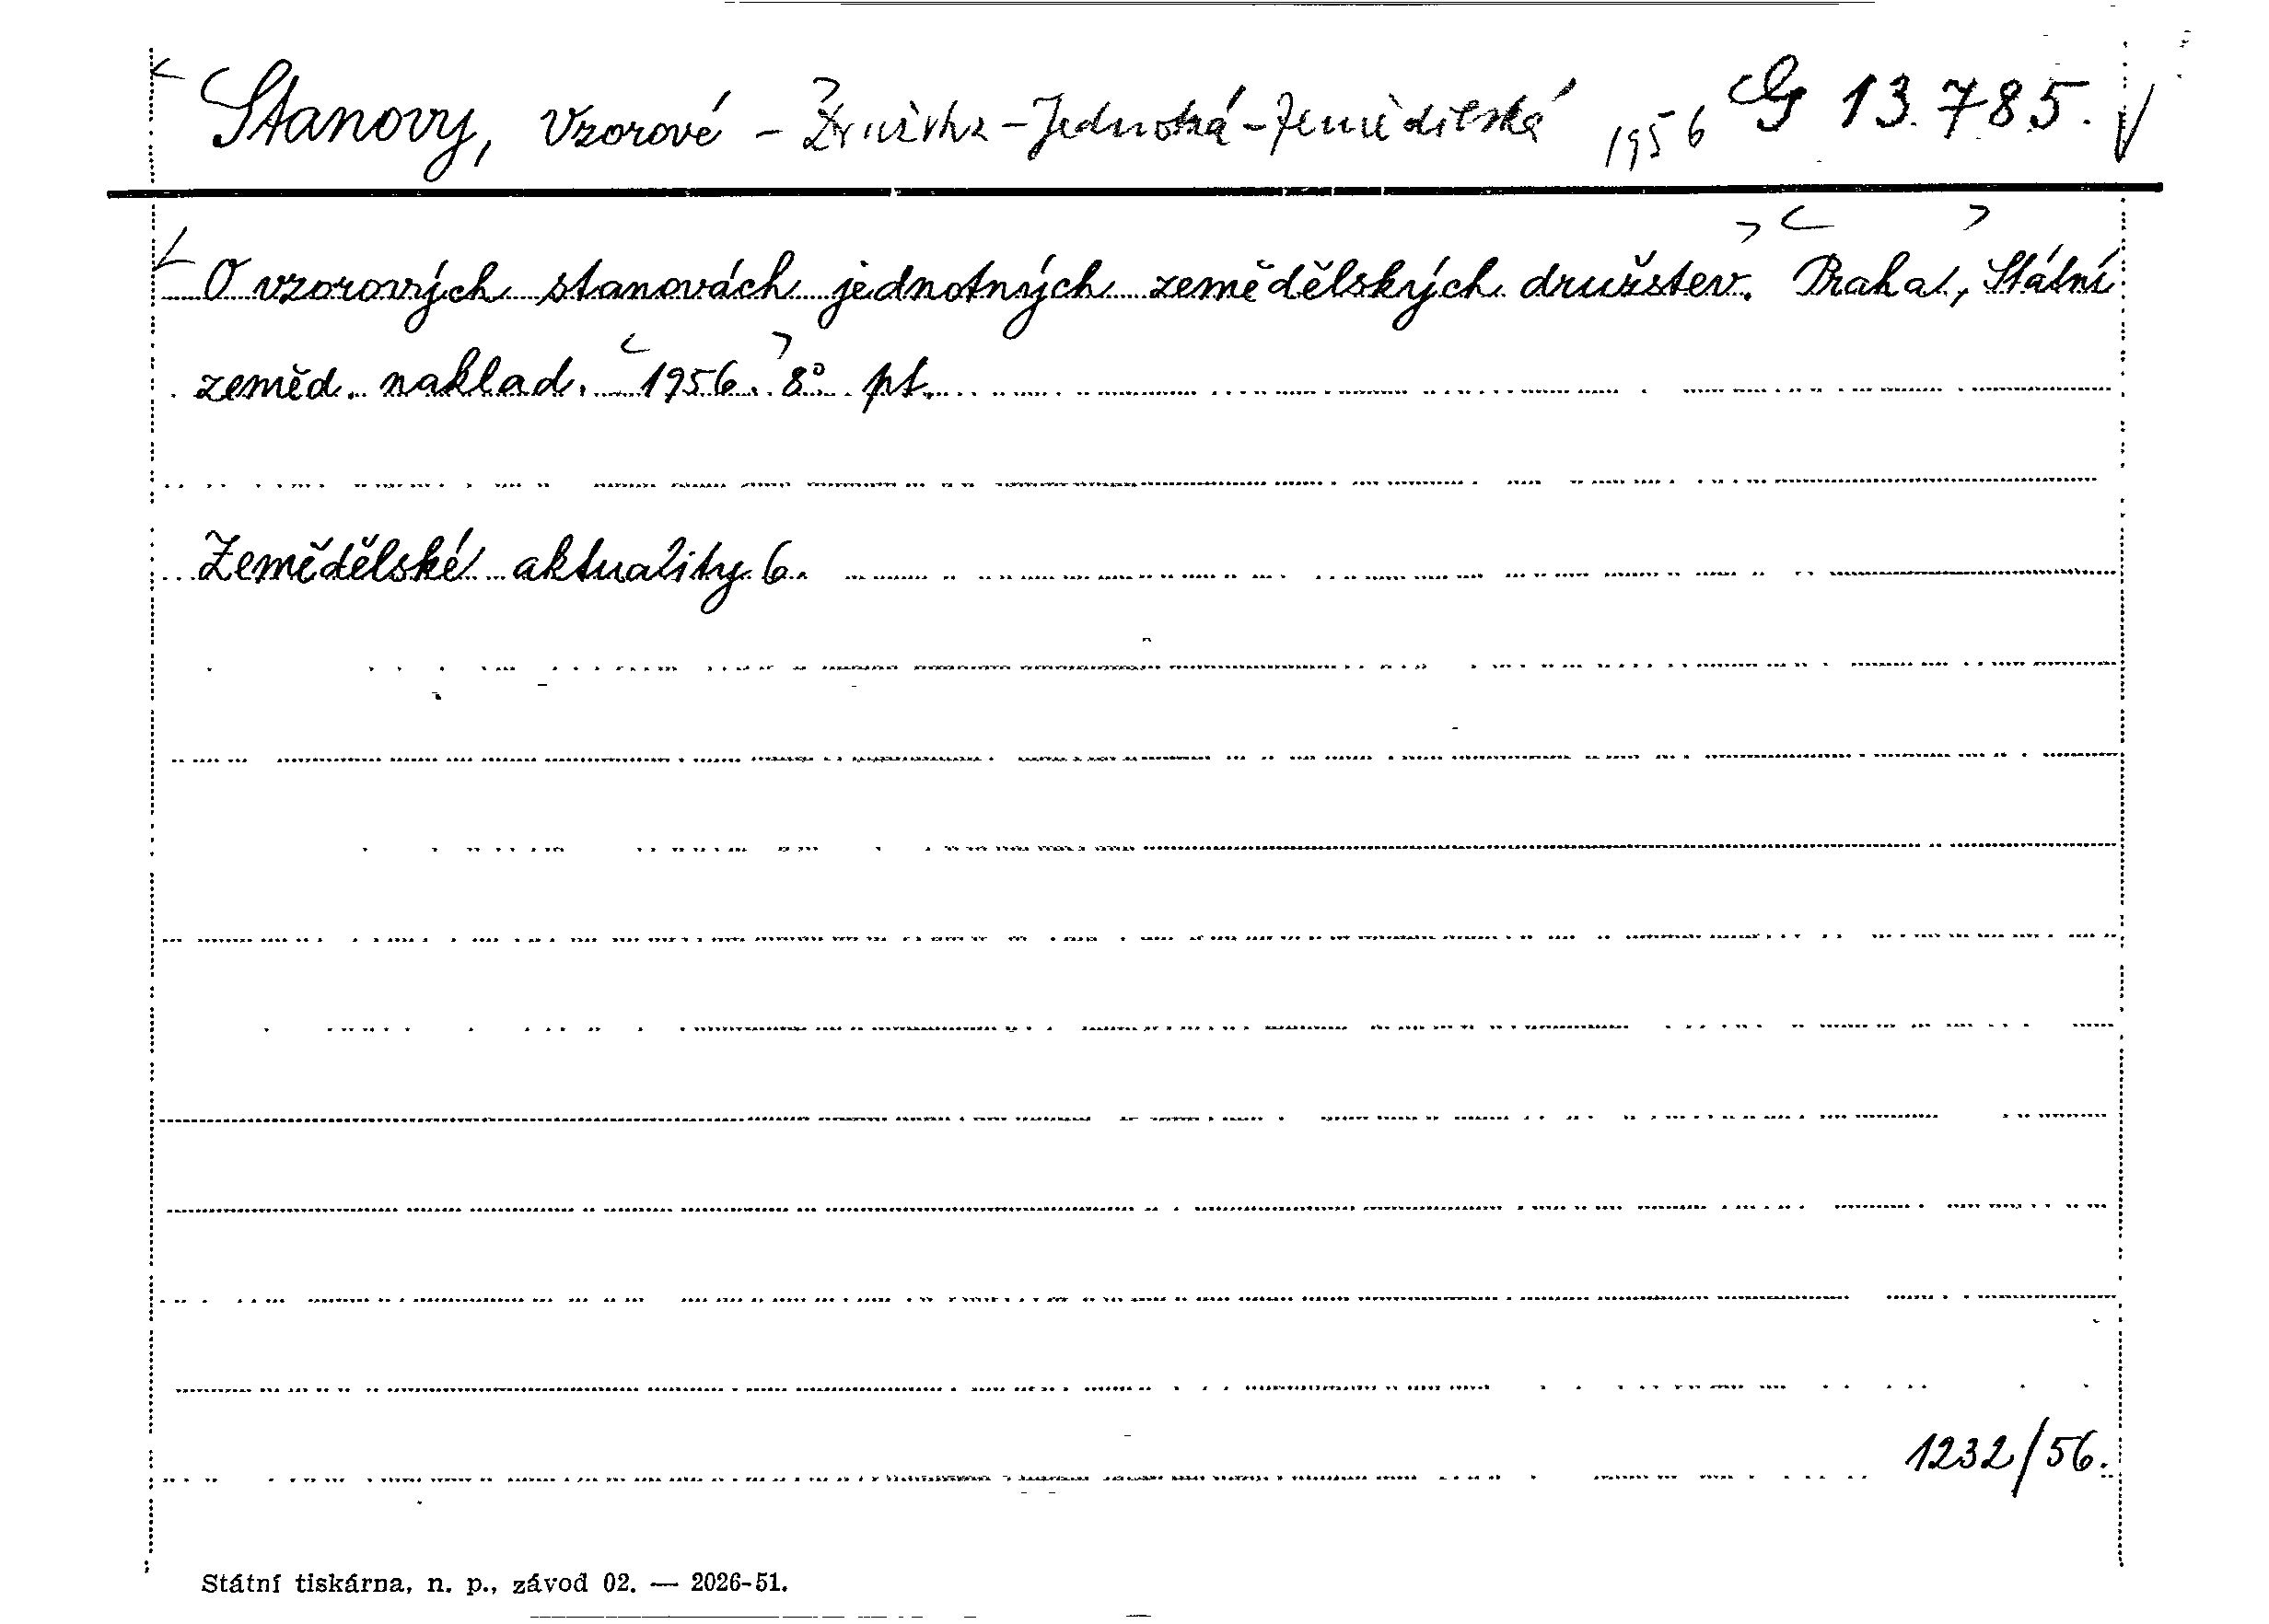 Stanovy, vzorové - Družstva - Jednotná - Zemědělská 1956 G 13.785.
O vzorových stanovách jednotných zemědělských družstev. Praha, Státní
zeměd. naklad. 1956. 8° pt.
Zemědělské aktuality 6.
1232/56.
Státní tiskárna, n. p., závod 02. — 2026-51.